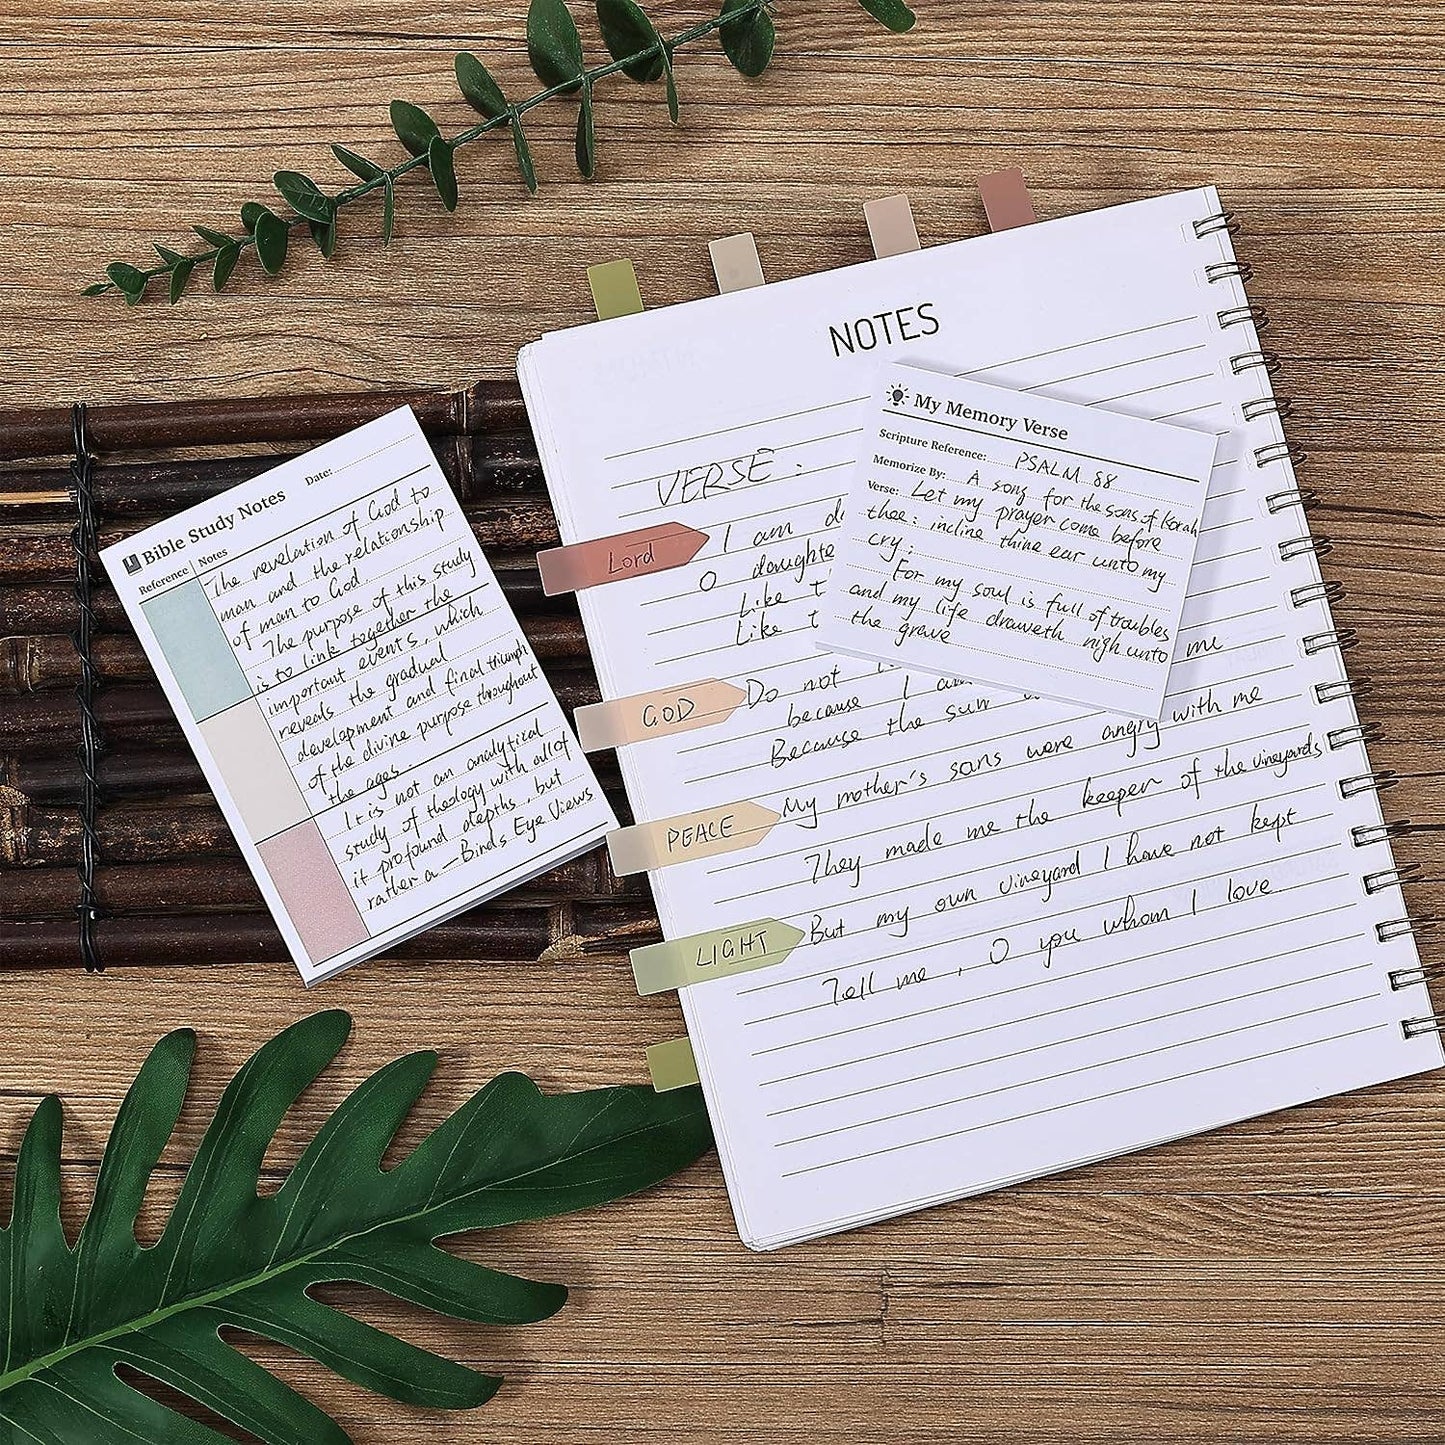 Bible Study Notes
Date:
Reference
Notes
The revelation of God to
man and the relationship
of man to God.
The purpose of this study
is to link together the
important events, which
reveals the gradual
development and final triumph
of the divine purpose throughout
the ages.
It is not an analytical
study of theology with all of
it profound depths, but
rather a - Binds Eye Views
NOTES
VERSE.
I am
O daughte
Like t
Like t
me
Do not
because I am
Because the sun
My mother's sons were angry with me
They made me the keeper of the vineyards
But my own vineyard I have not kept
Tell me, O you whom I love
Lord
GOD
PEACE
LIGHT
My Memory Verse
Scripture Reference: PSALM 88
Memorize By: A song for the sons of Korah
Verse: Let my prayer come before
thee: incline thine ear unto my
cry;
For my soul is full of troubles
and my life draweth nigh unto
the grave